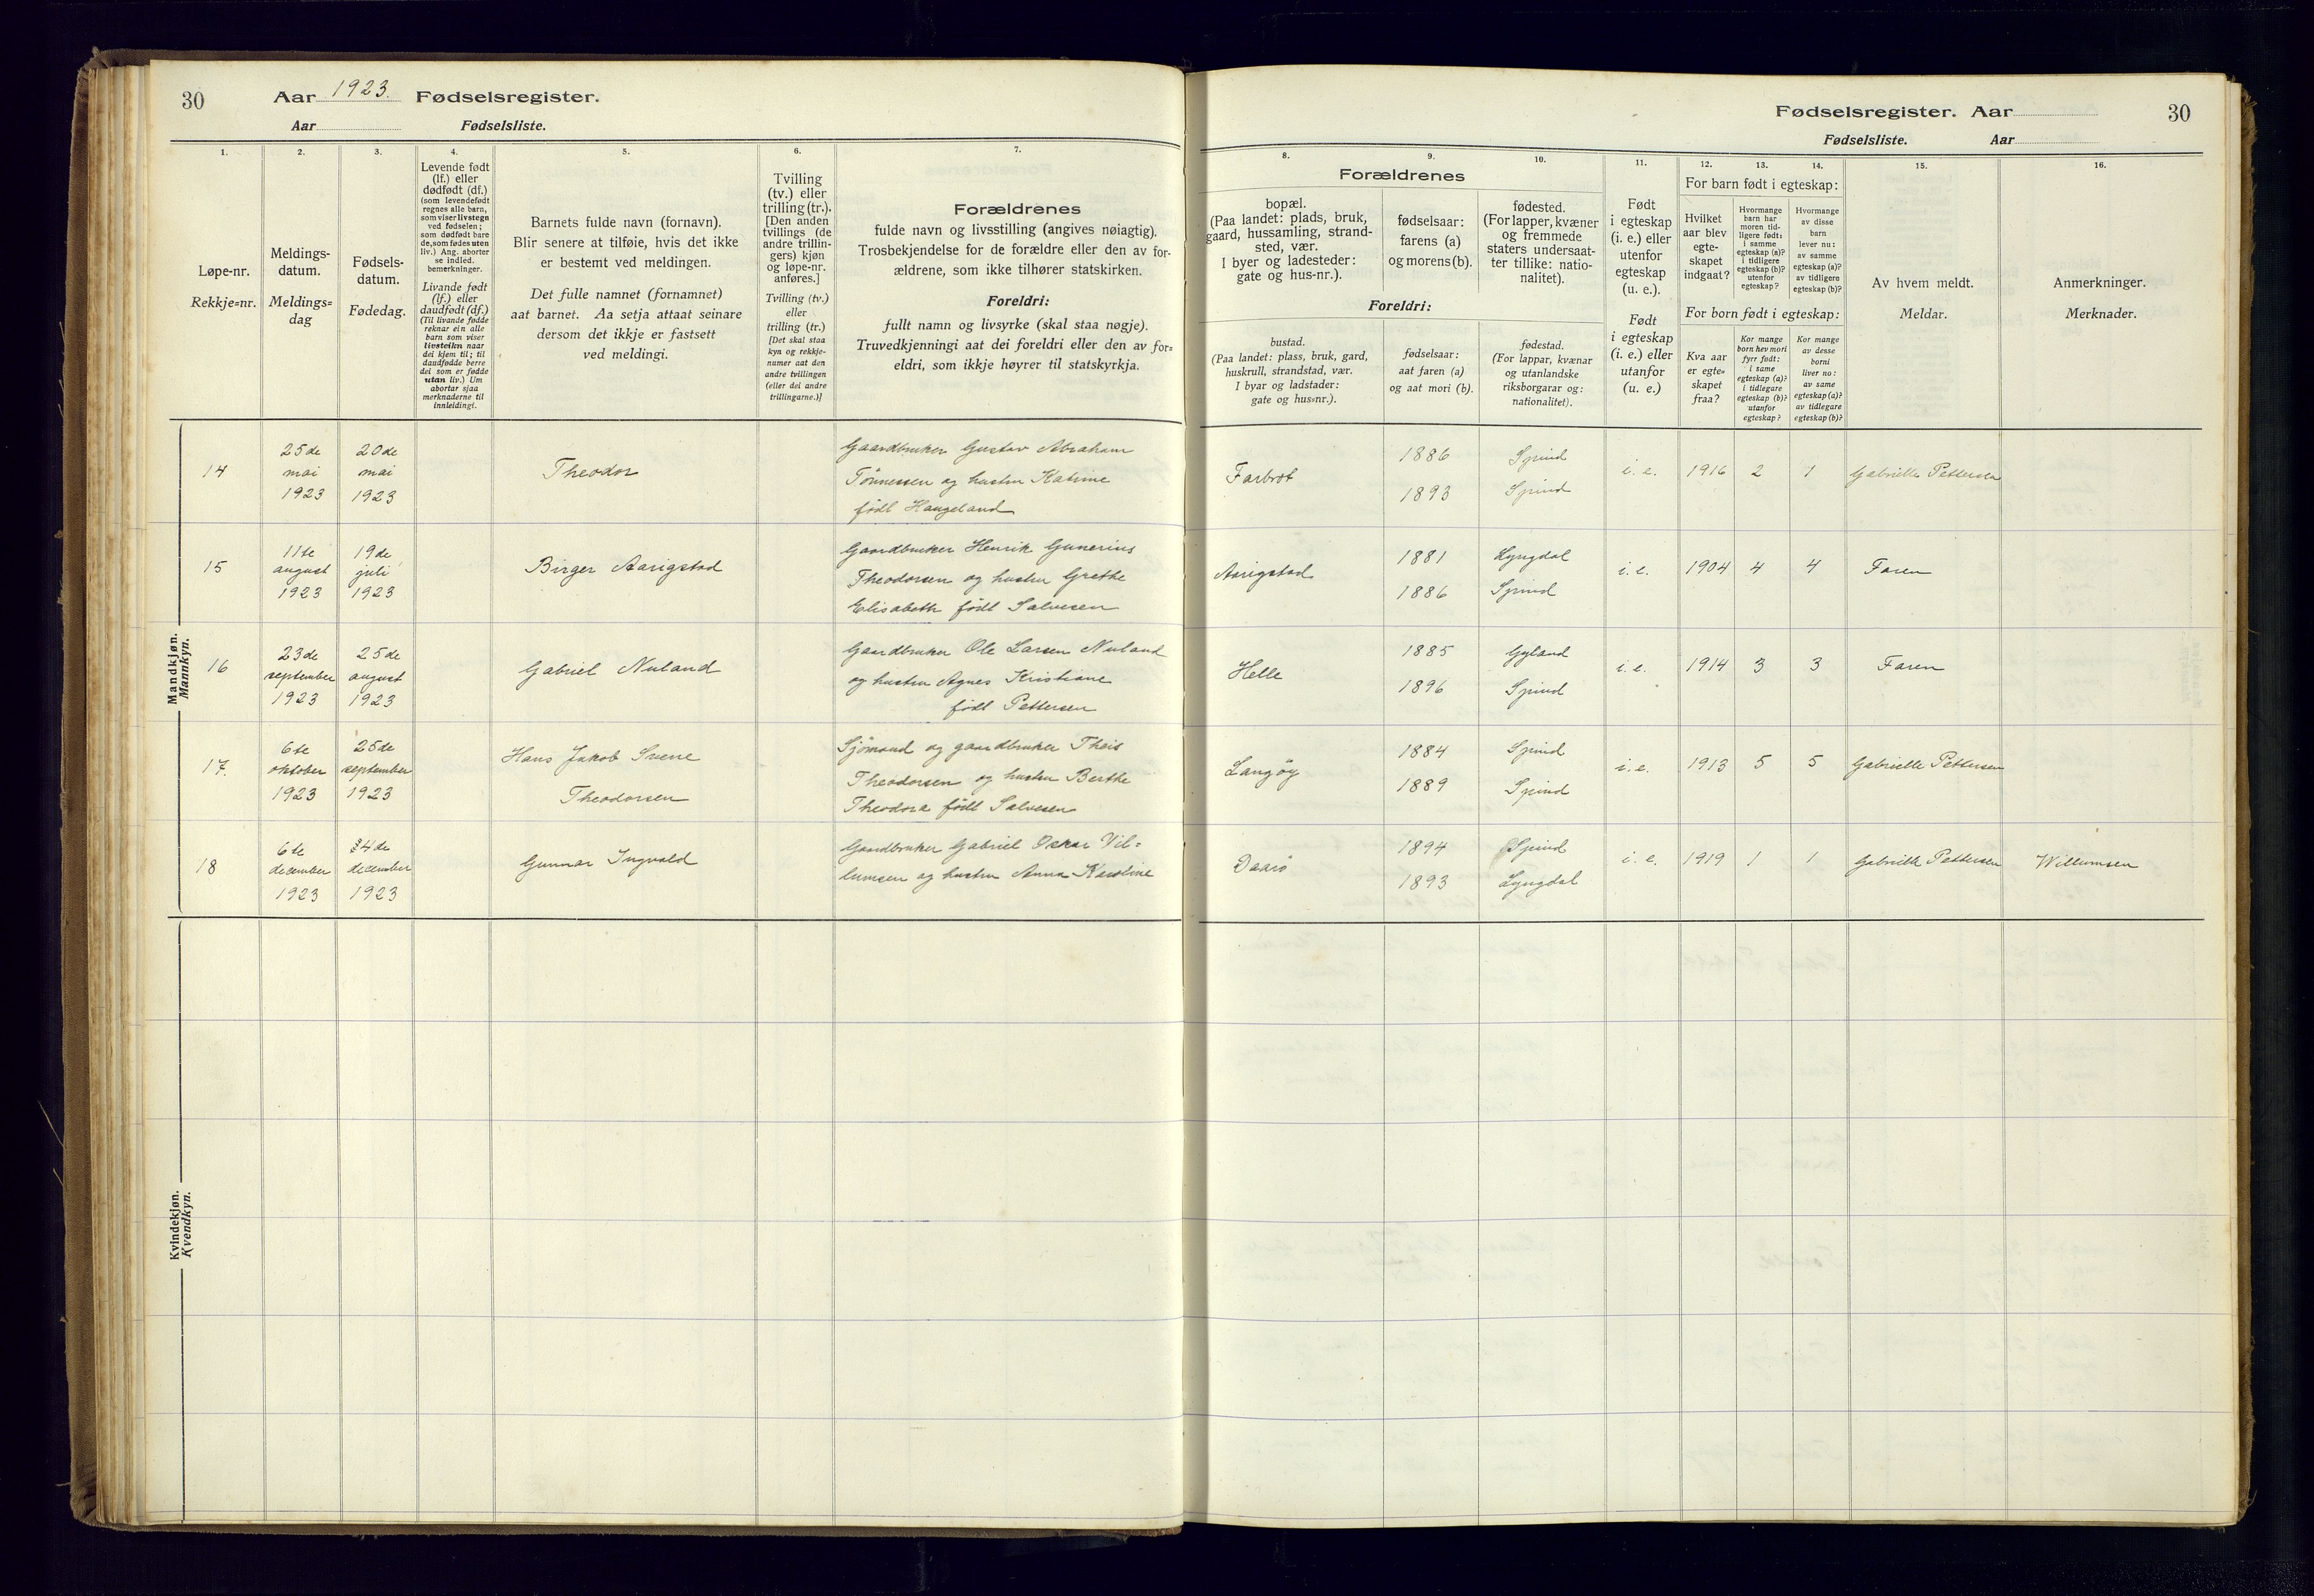 30
Aar 1923. Fødselsregister.
Aar Fødselsliste.
1.
Løpe-nr.
Rekkje=nr.
2.
Meldings-
datum.
Meldings=
dag
3.
Fødsels-
datum.
Fødedag.
4.
Levende født
(lf.) eller
dødfødt (df.)
(som levendefødt
regnes alle barn,
som viser livstegn
ved fødselen;
som dødfødt bare
de, som fødes uten
liv.) Ang. aborter
se indled.
bemerkninger.
Livande født
(lf.) eller
daudfødt (df.)
(Til livande fødde
reknar ein alle
barn som viser
livsteikn naar
dei kjem til; til
daudfødde berre
dei som er fødde
utan liv.) Um
abortar sjaa
merknaderne til
innleidingi.
5.
Barnets fulde navn (fornavn).
Blir senere at tilføie, hvis det ikke
er bestemt ved meldingen.
Det fulle namnet (fornamnet)
aat barnet. Aa setja attaat seinare
dersom det ikkje er fastsett
ved meldingi.
6.
Tvilling
(tv.) eller
trilling (tr.).
[Den anden
tvillings (de
andre trillin-
gers) kjøn
og løpe-nr.
anføres.]
Tvilling (tv.)
eller
trilling (tr.)
[Det skal staa
kyn og rekkje-
numer aat den
andre tvillingen
(eller dei andre
trillingarne.)]
7.
Forældrenes
fulde navn og livsstilling (angives nøiagtig).
Trosbekjendelse for de forældre eller den av for-
ældrene, som ikke tilhører statskirken.
Foreldri:
fullt namn og livsyrke (skal staa nøgje).
Truvedkjenningi aat dei foreldri eller den av for=
eldri, som ikkje høyrer til statskyrkja.
Mandkjøn.
Mannkyn.
14
25de
mai
1923
20de
mai
1923
Theodor
Gaardbruker Gustav Abraham
Tönnessen og hustru Katrine
født Haugeland
15
11te
august
1923
19de
juli
1923
Birger Aarigstad
Gaardbruker Henrik Gunerius
Theodorsen og hustru Grethe
Elisabeth født Salvesen
16
23de
september
1923
25de
august
1923
Gabriel Nuland
Gaardbruker Ole Larsen Nuland
og hustru Agnes Kristiane
født Pettersen
17.
6te
oktober
1923
25de
september
1923
Hans Jakob Svene
Theodorsen
Sjömand og gaardbruker Theis
Theodorsen og hustru Berthe
Theodora født Salvesen
18
6te
december
1923
4de
december
1923
Gunnar Ingvald
Gaardbruker Gabriel Oskar Vil=
lumsen og hustru Anna Karoline
Kvindekjøn.
Kvendkyn.
Fødselsregister. Aar 30
Fødselsliste. Aar
8.
Forældrenes
bopæl.
(Paa landet: plads, bruk,
gaard, hussamling, strand-
sted, vær.
I byer og ladesteder:
gate og hus-nr.).
Foreldri:
bustad.
(Paa landet: plass, bruk, gard,
huskrull, strandstad, vær.
I byar og ladstader:
gate og hus=nr.).
9.
fødselsaar:
farens (a)
og morens (b).
fødselsaar:
aat faren (a)
og aat mori (b).
10.
fødested.
(For lapper, kvæner
og fremmede
staters undersaat-
ter tillike: natio-
nalitet).
fødestad.
(For lappar, kvænar
og utanlandske
riksborgarar og:
nationalitet).
11.
Født
i egteskap
(i. e.) eller
utenfor
egteskap
(u. e.).
Født
i egteskap
(i. e.) eller
utanfor
(u. e.)
12. 13. 14.
For barn født i egteskap:
Hvilket
aar blev
egte-
skapet
indgaat?
Hvormange
barn har
moren tid-
ligere født:
i samme
egteskap (a)?
i tidligere
egteskap (b)?
utenfor
egteskap?
Hvormange
av disse
barn
lever nu:
av samme
egteskap (a)?
av tidligere
egteskap (b)?
For born født i egteskap:
Kva aar
er egte=
skapet
fraa?
Kor mange
born hev mori
fyrr født:
i same
egteskap (a)?
i tidlegare
egteskap (b)?
utanfor
egteskap?
Kor mange
av desse
borni
liver no:
av same
egteskap (a)?
av tidlegare
egteskap (b)?
15.
Av hvem meldt.
Meldar.
16.
Anmerkninger.
Merknader.
Farbrot
1886
1893
Spind
Spind
i. e. 1916 2 1 Gabrielle Pettersen
Aarigstad
1881
1886
Lyngdal
Spind
i. e. 1904 4 4 Faren
Helle
1885
1896
Gyland
Spind
i. e. 1914 3 3 Faren
Langöy
1884
1889
Spind
Spind
i. e. 1913 5 5 Gabrielle Pettersen
1894
1893
Spind
Lyngdal
i. e. 1919 1 1 Gabrielle Pettersen Willumsen